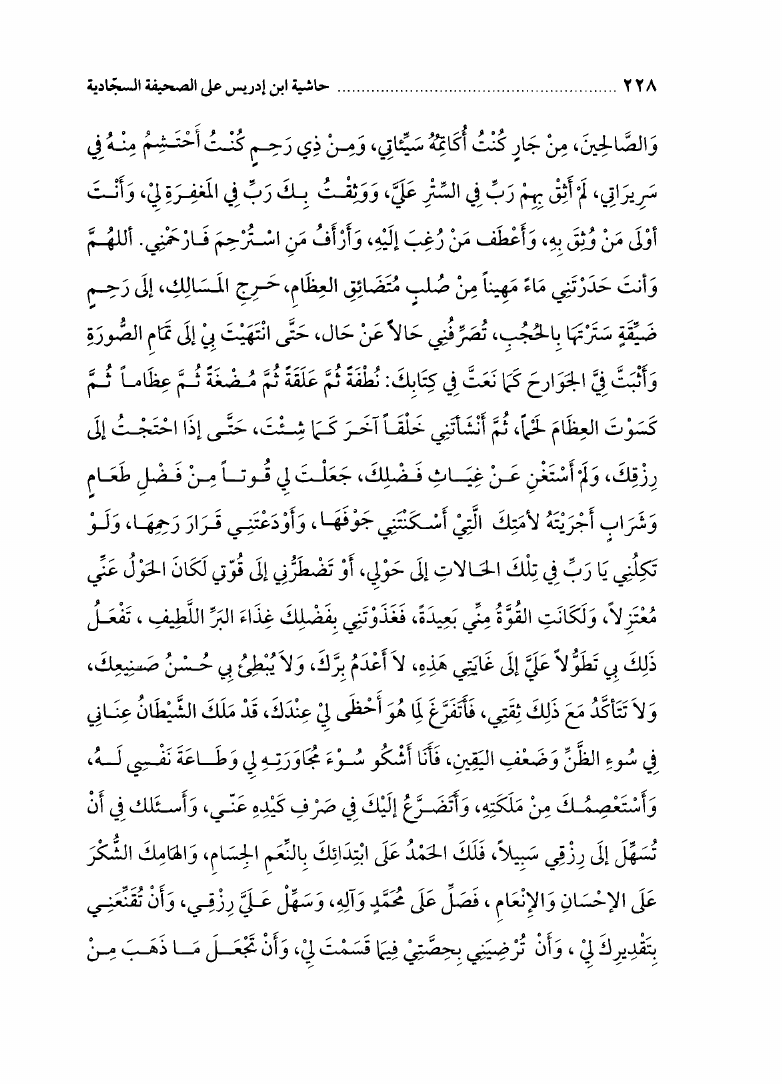 ٢٢٨ ........................................................ حاشية ابن إدريس على الصحيفة السجّادية
وَالصَّالِحِينَ، مِنْ جَارٍ كُنْتُ أُكَاتِمُهُ سَيِّئَاتِي، وَمِـنْ ذِي رَحِـمٍ كُنْـتُ أَحْتَـشِمُ مِنْـهُ فِي
سَرِيرَاتِي، لَمْ أَثِقْ بِهِمْ رَبِّ فِي السِّتْرِ عَلَيَّ، وَوَثِقْـتُ بِـكَ رَبِّ فِي المَغفِـرَةِ لِيْ، وَأَنْـتَ
أوْلَى مَنْ وُثِقَ بِهِ، وَأَعْطَف مَنْ رُغِبَ إلَيْهِ، وَأَرْأَفُ مَنِ اسْـتُرْحِمَ فَـارْحَمْنِي. أللهُـمَّ
وَأنتَ حَدَرْتَنِي مَاءً مَهِيناً مِنْ صُلبٍ مُتَضَائِقِ العِظَامِ، حَـرِجِ المَـسَالِكِ، إلَى رَحِـمٍ
ضَيِّقَةٍ سَتَرْتَهَا بِالحُجُبِ، تُصَرِّفُنِي حَالاً عَنْ حَال، حَتَّى انْتَهَيْتَ بِيْ إلَى تَمَامِ الصُّورَةِ
وَأثْبَتَّ فِيَّ الجَوَارحَ كَمَا نَعَتَّ فِي كِتَابِكَ: نُطْفَةً ثُمَّ عَلَقَةً ثُمَّ مُـضْغَةً ثُـمَّ عِظَامـاً ثُـمَّ
كَسَوْتَ العِظَامَ لَحْماً، ثُمَّ أَنْشَأتَنِي خَلْقـاً آخَـرَ كَـمَا شِـئْتَ، حَتَّـى إذَا احْتَجْـتُ إلَى
رِزْقِكَ، وَلَمْ أسْتَغْنِ عَـنْ غِيَـاثِ فَـضْلِكَ، جَعَلْـتَ لِي قُـوتـاً مِـنْ فَـضْلِ طَعَـامٍ
وَشَرَابٍ أجْرَيْتَهُ لأمَتِكَ الَّتِيْ أسْـكَنْتَنِي جَوْفَهَـا، وَأوْدَعْتَنِـي قَـرَارَ رَحِمِهَـا، وَلَـوْ
تَكِلُنِي يَا رَبِّ فِي تِلْكَ الحَـالاتِ إلَى حَوْلِي، أَوْ تَضْطَرُّنِي إلَى قُوّتي لَكَانَ الحَوْلُ عَنِّي
مُعْتَزِلاً، وَلَكَانَتِ القُوَّةُ مِنِّي بَعِيدَةً، فَغَذَوْتَنِي بِفَضْلِكَ غِذَاءَ البَرِّ اللَّطِيفِ ، تَفْعَـلُ
ذَلِكَ بِي تَطَوُّلاً عَلَيَّ إلَى غَايَتِي هَذِهِ، لاَ أعْدَمُ بِرَّكَ، وَلاَ يُبْطِئُ بِي حُـسْنُ صَـنِيعِكَ،
وَلاَ تَتَأكَّدُ مَعَ ذَلِكَ ثِقَتِي، فَأتَفَرَّغَ لِمَا هُوَ أَحْظَى لِيْ عِنْدَكَ، قَدْ مَلَكَ الشَّيْطَانُ عِنَـانِي
فِي سُوءِ الظَّنِّ وَضَعْفِ اليَقِينِ، فَأَنَا أَشْكُو سُـوْءَ مُجَاوَرَتِـهِ لِي وَطَـاعَةَ نَفْـسِي لَـهُ،
وَأَسْتَعْصِمُـكَ مِنْ مَلَكَتِهِ، وَأَتَضَـرَّعُ إلَيْكَ فِي صَرْفِ كَيْدِهِ عَنّـي، وَأسـئَلك فِي أنْ
تُسَهِّلَ إلَى رِزْقِي سَبِيلاً، فَلَكَ الحَمْدُ عَلَى ابْتِدَائِكَ بِالنِّعَمِ الجِسَامِ، وَالهَامِكَ الشُّكْرَ
عَلَى الإحْسَانِ وَالإنْعَامِ ، فَصَلِّ عَلَى مُحَمَّدٍ وَآلِهِ، وَسَهِّلْ عَـلَيَّ رِزْقِـي، وَأنْ تُقَنِّعَنِـي
بِتَقْدِيرِكَ لِيْ ، وَأنْ تُرْضِيَنِي بِحِصَّتِيْ فِيمَا قَسَمْتَ لِيْ، وَأنْ تَجْعَـلَ مَـا ذَهَـبَ مِـنْ